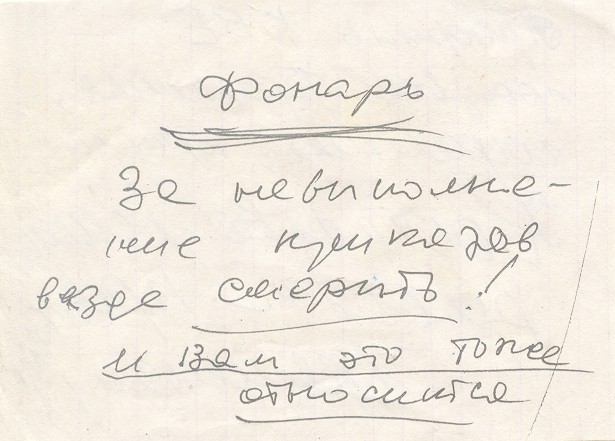 Фонарь
За невыполне-
ние приказов
везде смерть!
и Вам это тоже
относится